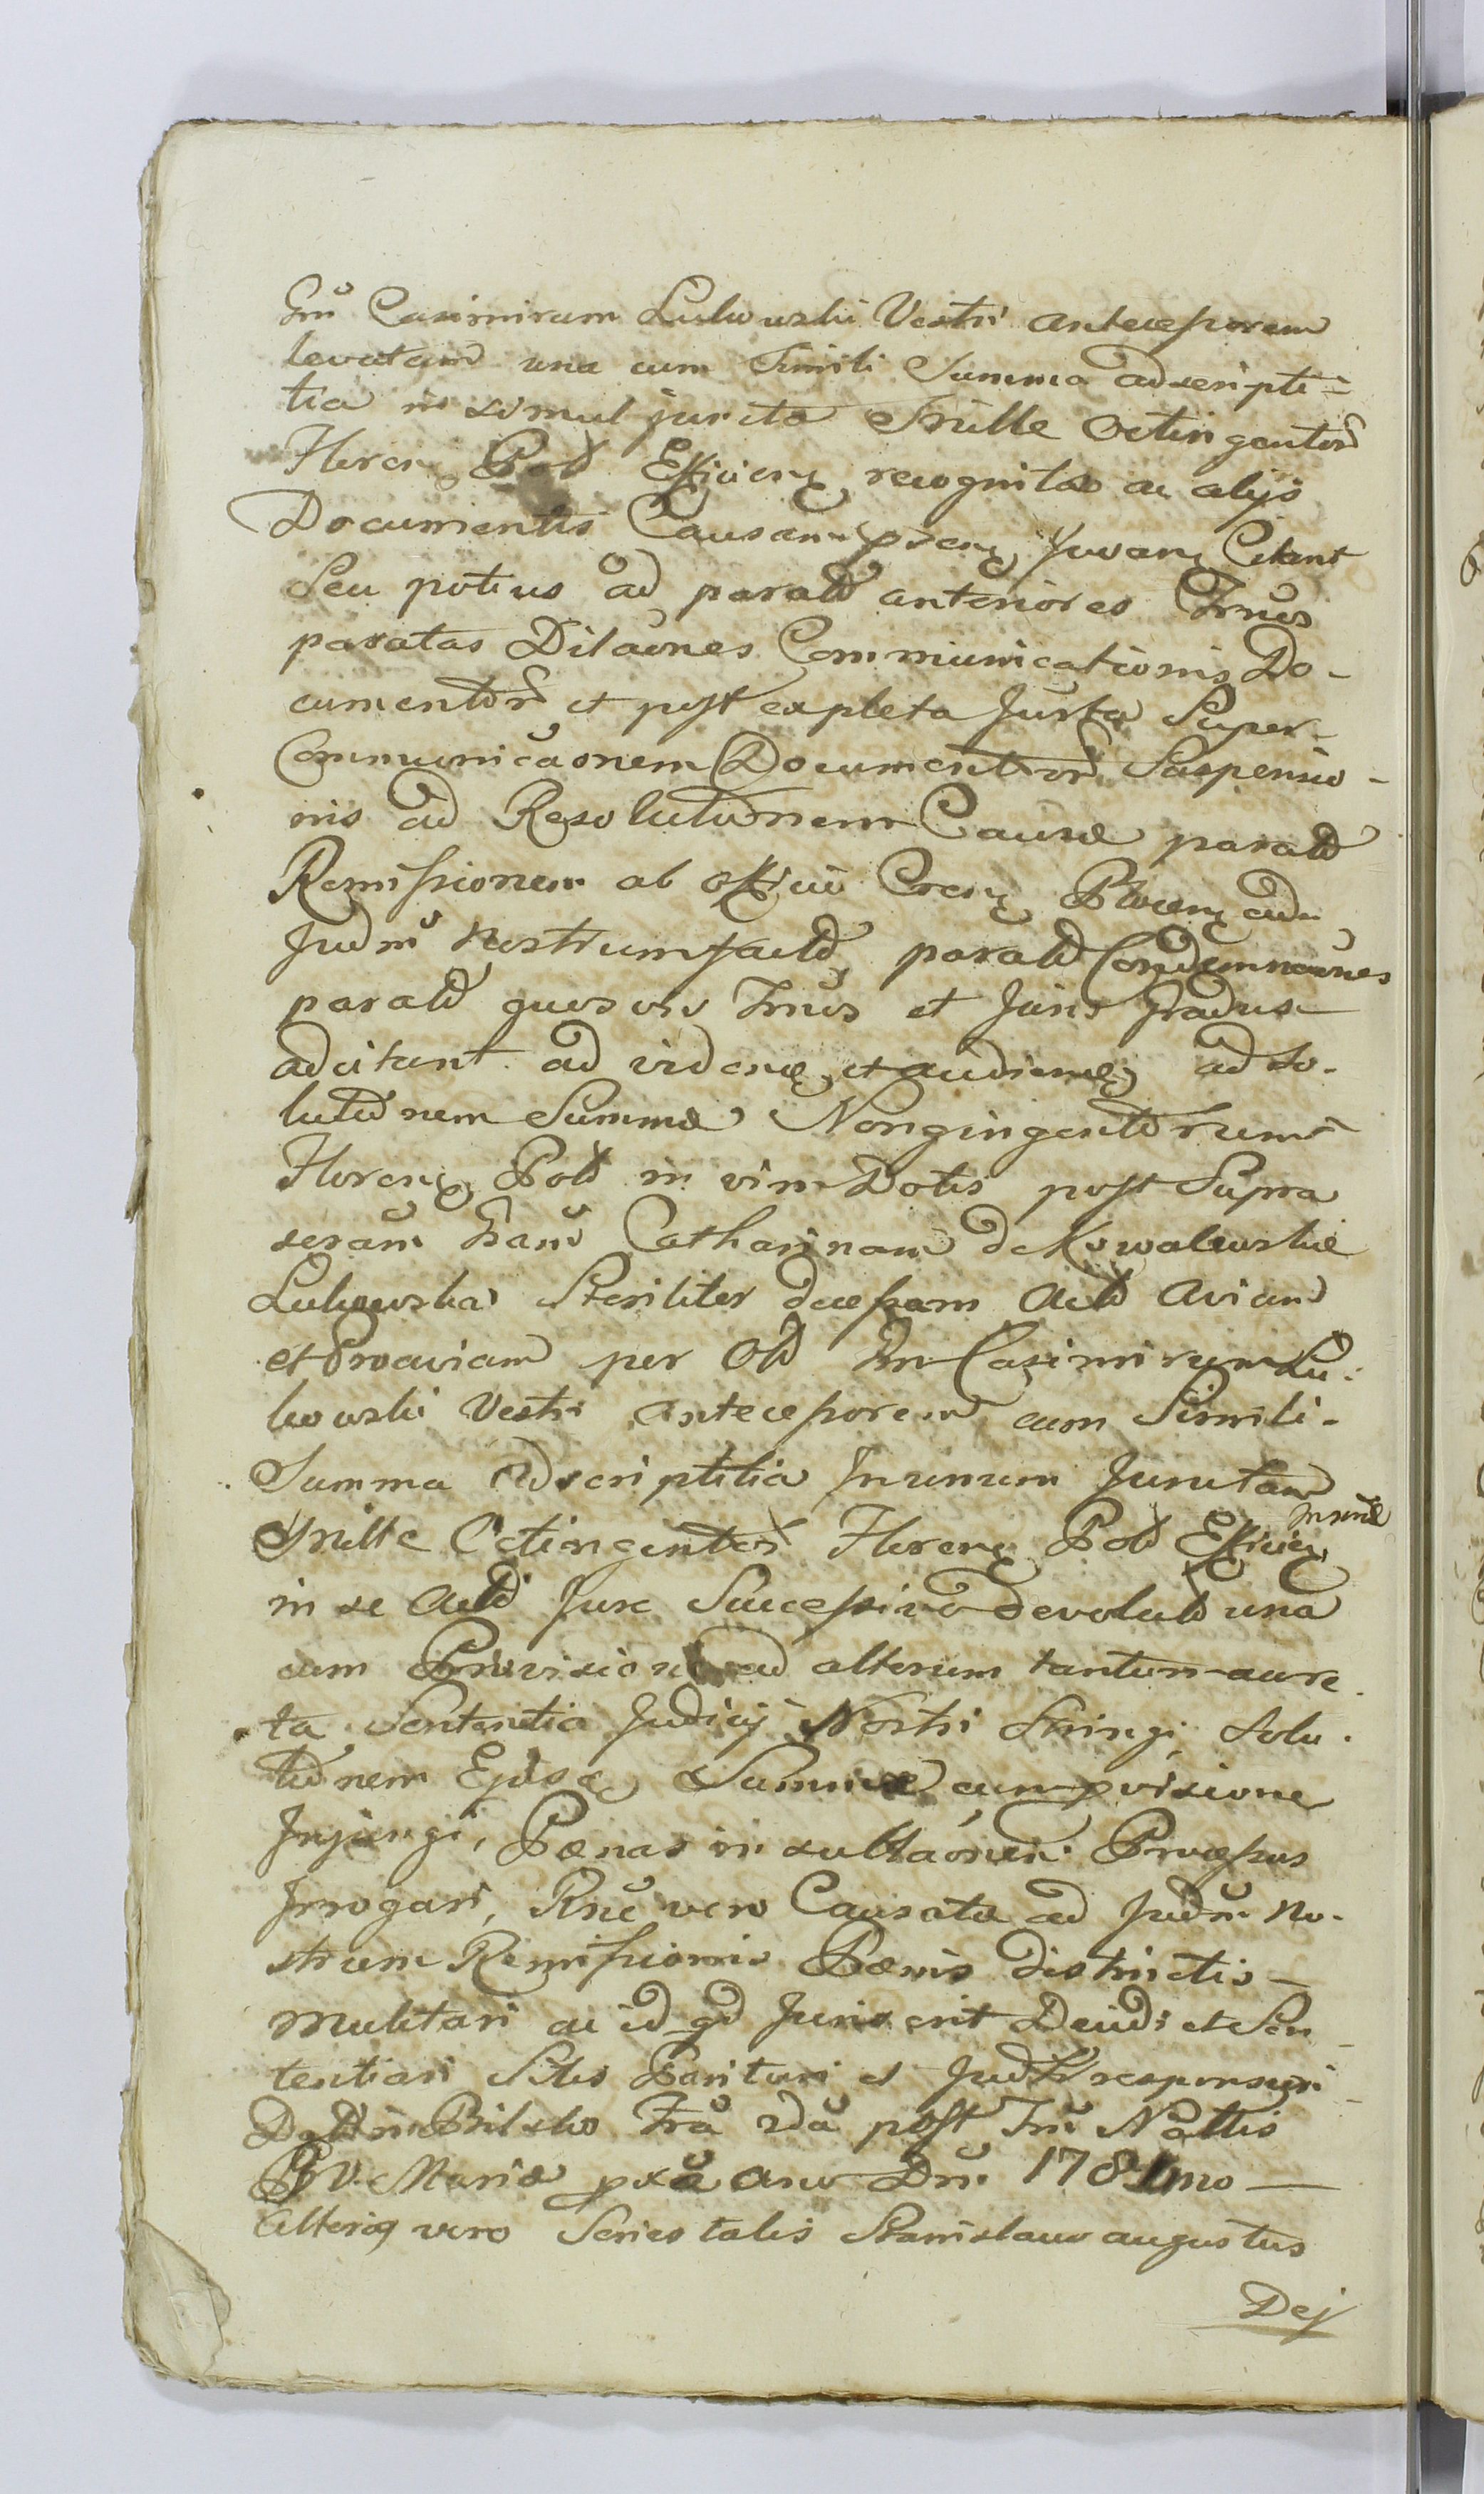 Gnũ Casimirum Lukowski Vestri antecessorem
levatam una cum Simili Summa adscripti=
tia in simul juncta Mille Octingentor
Floren Pol Efficien recognita ac alijs
Documentis Causam pñtem Juvan Citant
Seu potius ad parald anteriores Trnos
paratas Dilaones Communicationis Do-
cumentor et post expleta Juxta Super-
Communicãonem Documentor Suspensio-
nis ad Resolutionem Causæ parald
Remissionem ab officio Cren Plocen ad
Judm̃ Nostrum facta parald Condemnaones
parald quosvis Trnos et Juris Gradus
adcitant ad viden et audien ad So-
lutionem Summæ Nongingentorum
Floren Pol in vim Dotis post Supra
seram Gnam Catharinam de Kowalewskie
Lukowska Steriliter decessam Act Aviam
et Proaviam per Old Gm Casimirum Lu:
kowski Vestri antecessorem cum Simili-
Summa Adscriptitia In unum Junctam
Mille Octingentor Floren Pol Efficien Insimul
in se Act Jure Successivo devolut una
cum Provisione ad alterum tantum aucre
ta Sententia Judicij Nostri Stringi Solu-
tionem Ejusq Summæ cum pvisione
Injungi, Pænas in sublãonem Processus
Irrogari, Rne vero Causata ad Judm̃ No-
strum Remissionis Pænis districtis-
Mulctari ac id qd Juris erit Decidi et Sen-
tentiari Sitis Parituri et Judlr responsuri
Dat in Bilsko Fra 2da post Fm̃ Nattis
B V. Mariæ pxa Ano Dni 1781mo —
Alterius vero Series talis Stanislaus augustus
Dej